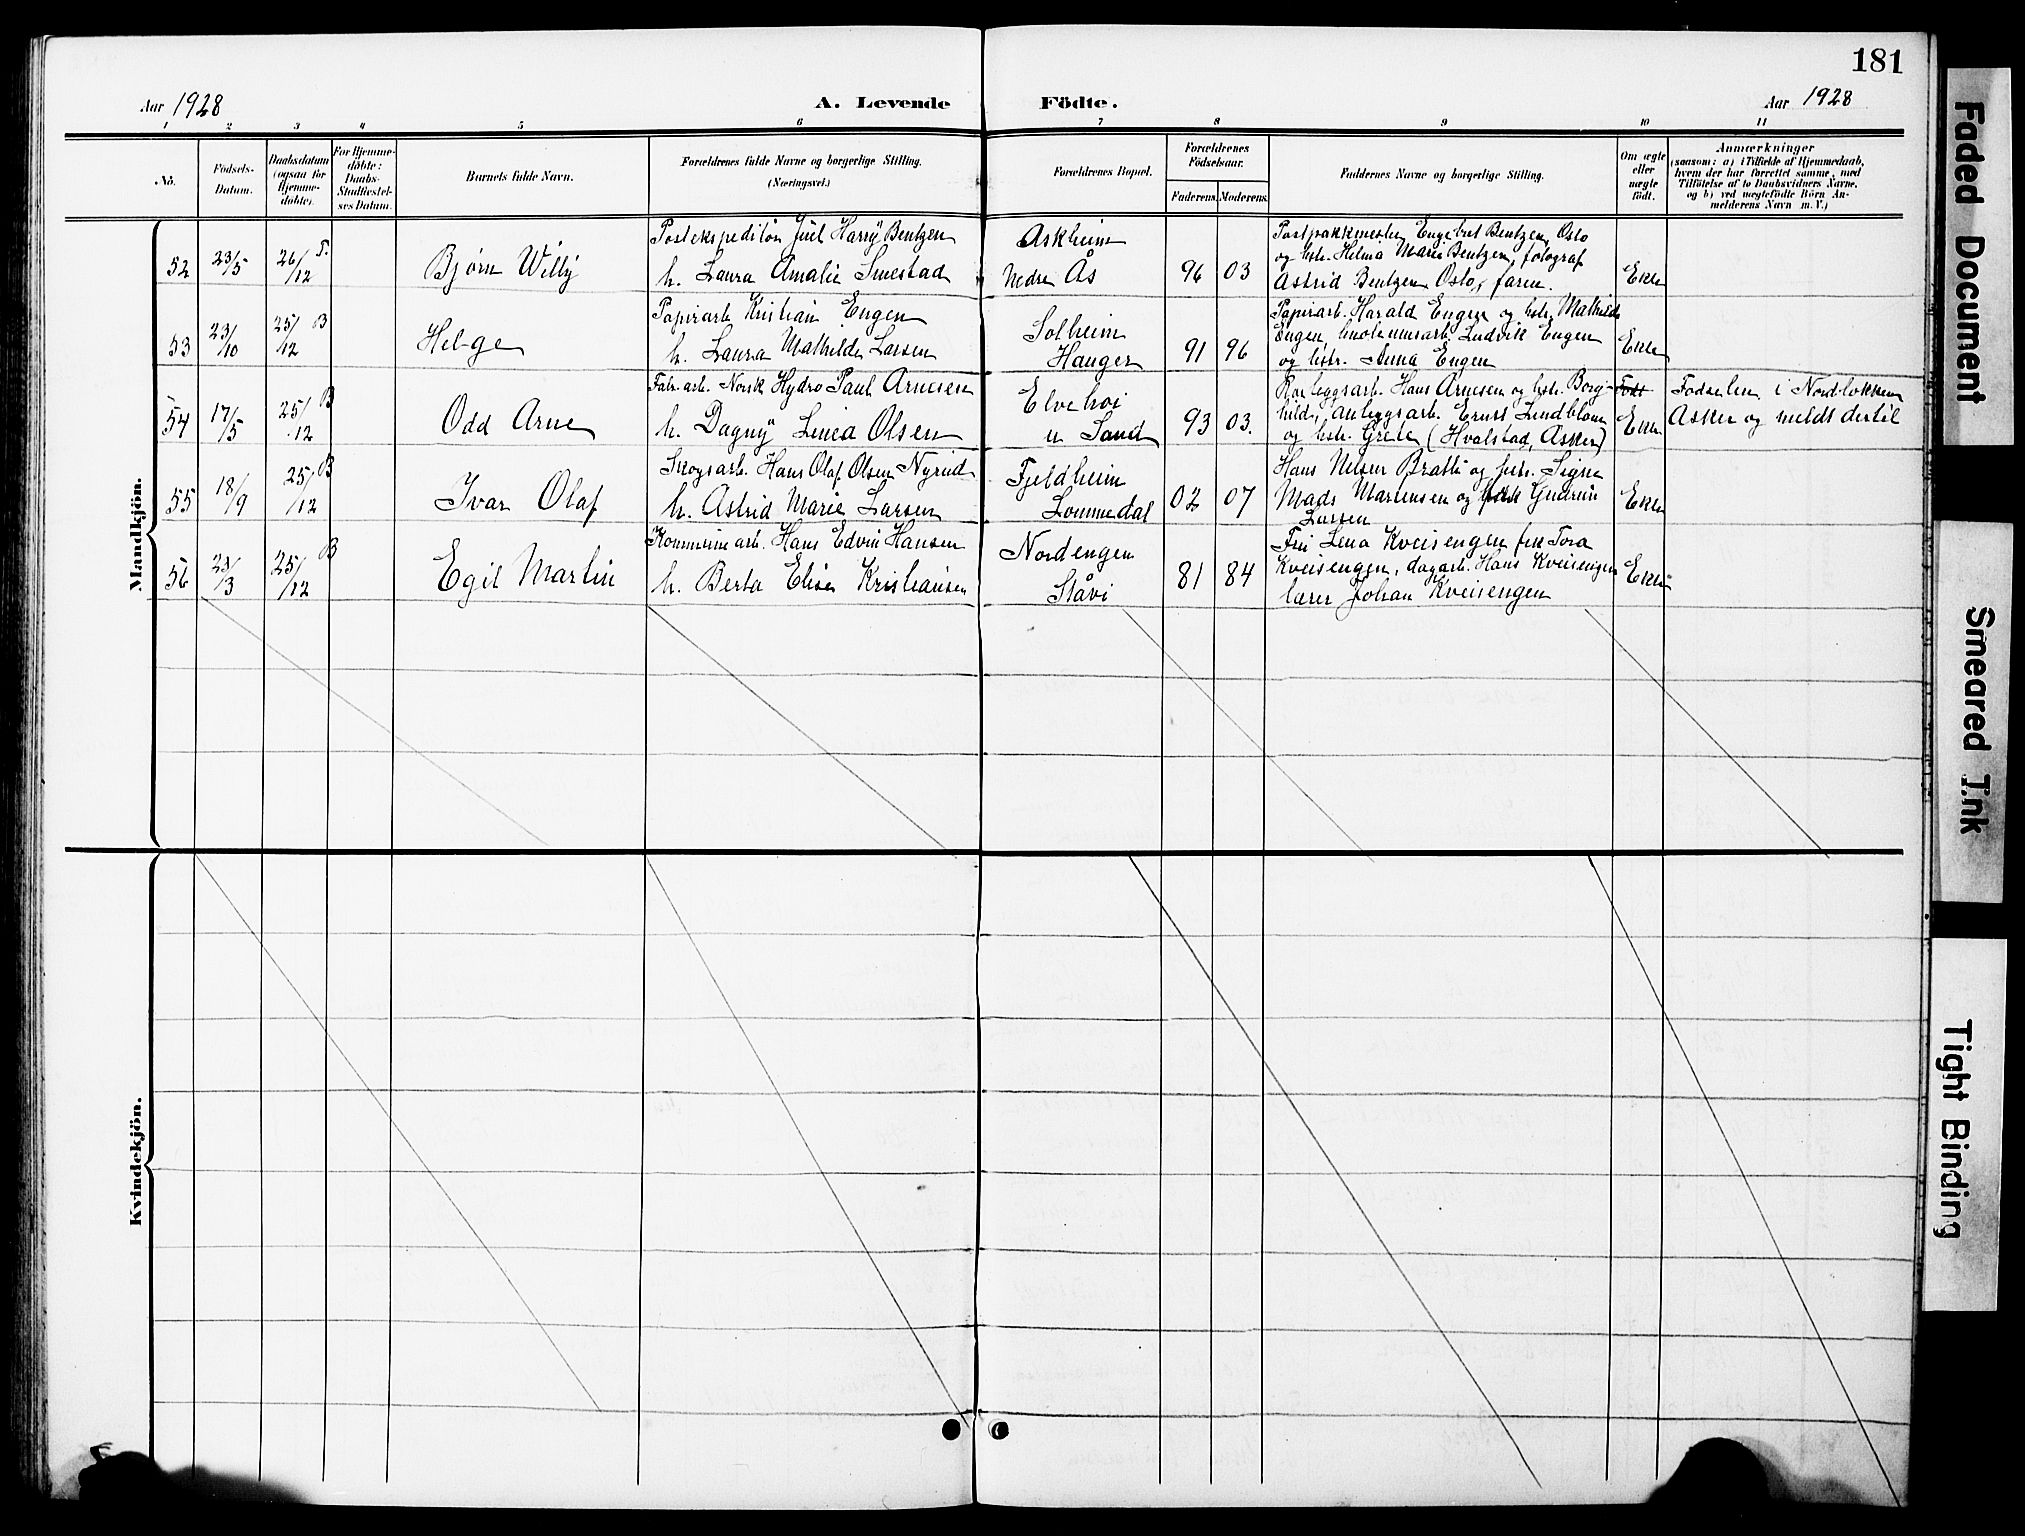 181
Aar 1928
A. Levende Födte.
Aar 1928
1 2 3 4 5 6 7 8 9 10 11
No.
Födsels-
Datum.
Daabsdatum
(ogsaa for
Hjemme-
döbte).
For Hjemme-
döbte:
Daabs-
Stadfæstel-
ses Datum.
Barnets fulde Navn.
Forældrenes fulde Navne og borgerlige Stilling.
(Næringsvei.)
Forældrenes Bopæl.
Forældrenes
Födselsaar.
Faderens. Moderens.
Faddernes Navne og borgerlige Stilling.
Om ægte
eller
uægte
födt.
Anmærkninger
(saasom: a) i Tilfælde af Hjemmedaab,
hvem der har forrettet samme, med
Tilföielse af to Daabsvidners Navne,
og b) ved uægtefödte Börn An-
melderens Navn m. V.)
Mandkjön.
52 23/5 26/12 T.
Bjørn Willy
Postekspeditör Juel Harry Bentzen
h. Laura Amalie Smestad
Askheim
Nedre Ås
96 03
Postpakkmester Engebret Bentzen, Oslo
og hstr. Helma Marie Bentzen, fotograf
Astrid Bentzen Oslo, faren.
Ekte
53 23/10 25/12 B
Helge
Papirarb. Kristian Engen
h. Laura Mathilde Larsen
Solheim
Hauger
91 96
Papirarb. Harald Engen og hstr. Mathilde
Engen, Ludvik Engen
og hstr. Anna Engen
Ekte
54 17/5 25/12 B
Odd Arne
Fabr. arb. Norsk Hydro Paul Arnesen
h. Dagny Linea Olsen
Elvehoi
n Sand
93 03.
Rørleggsarb. Hans Arnesen og hstr. Borg-
hild, anleggsarb. Ernst Lindblom
og hstr. Grete (Hvalstad, Asker)
Født
Ekte
Fødselen i Nordløkken
Asker og meldt dertil
55 18/9 25/12 B
Ivar Olaf
Skogsarb. Hans Olaf Olsen Nyrud
h. Astrid Marie Larsen
Fjeldheim
Lommedal
02 07
Hans Nilsen Bratli og hstr. Signe
Mads Martinsen og Gudrun
Larsen
Ekte
56 23/3 25/12 B
Egil Martin
Kommunearb. Hans Edvin Hansen
h. Berta Elise Kristiansen
Nordengen
Ståvi
81 84
Fru Lena Kveisengen frk Tora
Kveisengen, dagarb. Hans Kveisengen
lærer Johan Kveisengen
Ekte
Kvindekjön.
Faded Document
Smeared Ink
Tight Binding